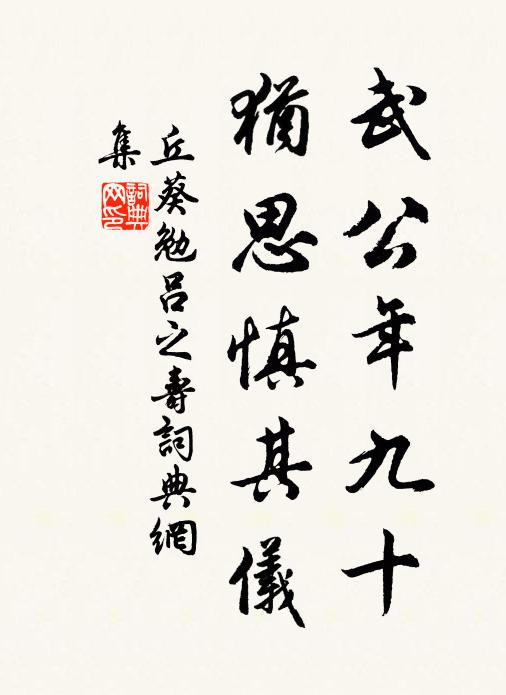 武公年九十
猶思慎其儀
丘葵勉呂之壽詞典網
集
詞典網印